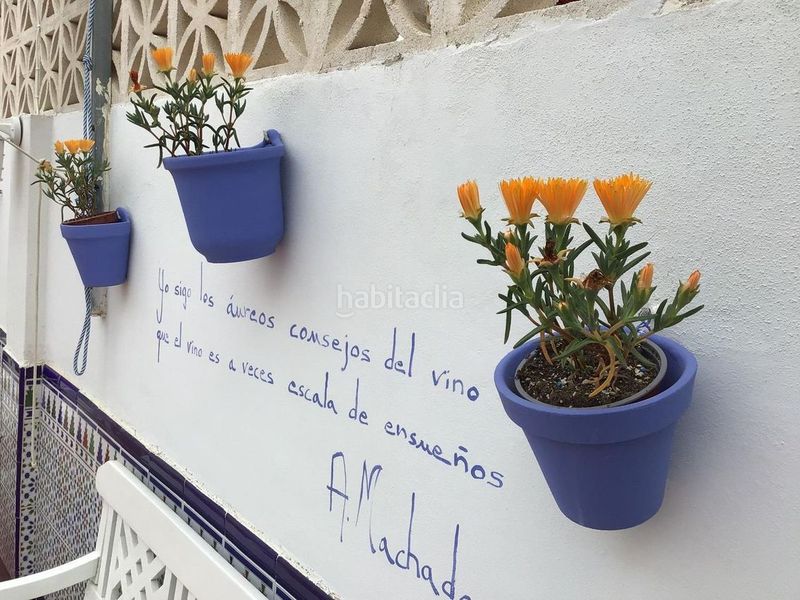 habitaclia
Yo sigo los áureos consejos del vino
que el vino es a veces escala de ensueños
A. Machado